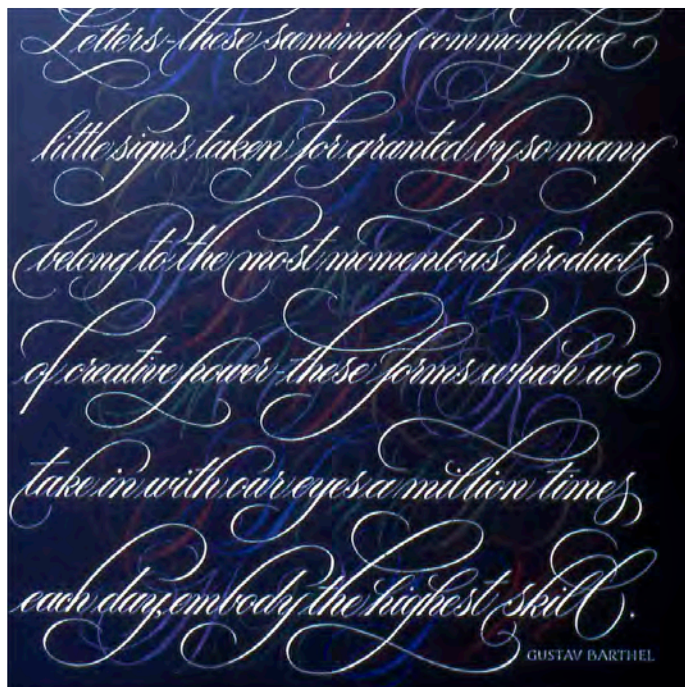 Letters-these samingly commonplace
little signs taken for granted by so many
belong to the most momentous products
of creative power-these forms which we
take in with our eyes a million times
each day, embody the highest skill.
GUSTAV BARTHEL